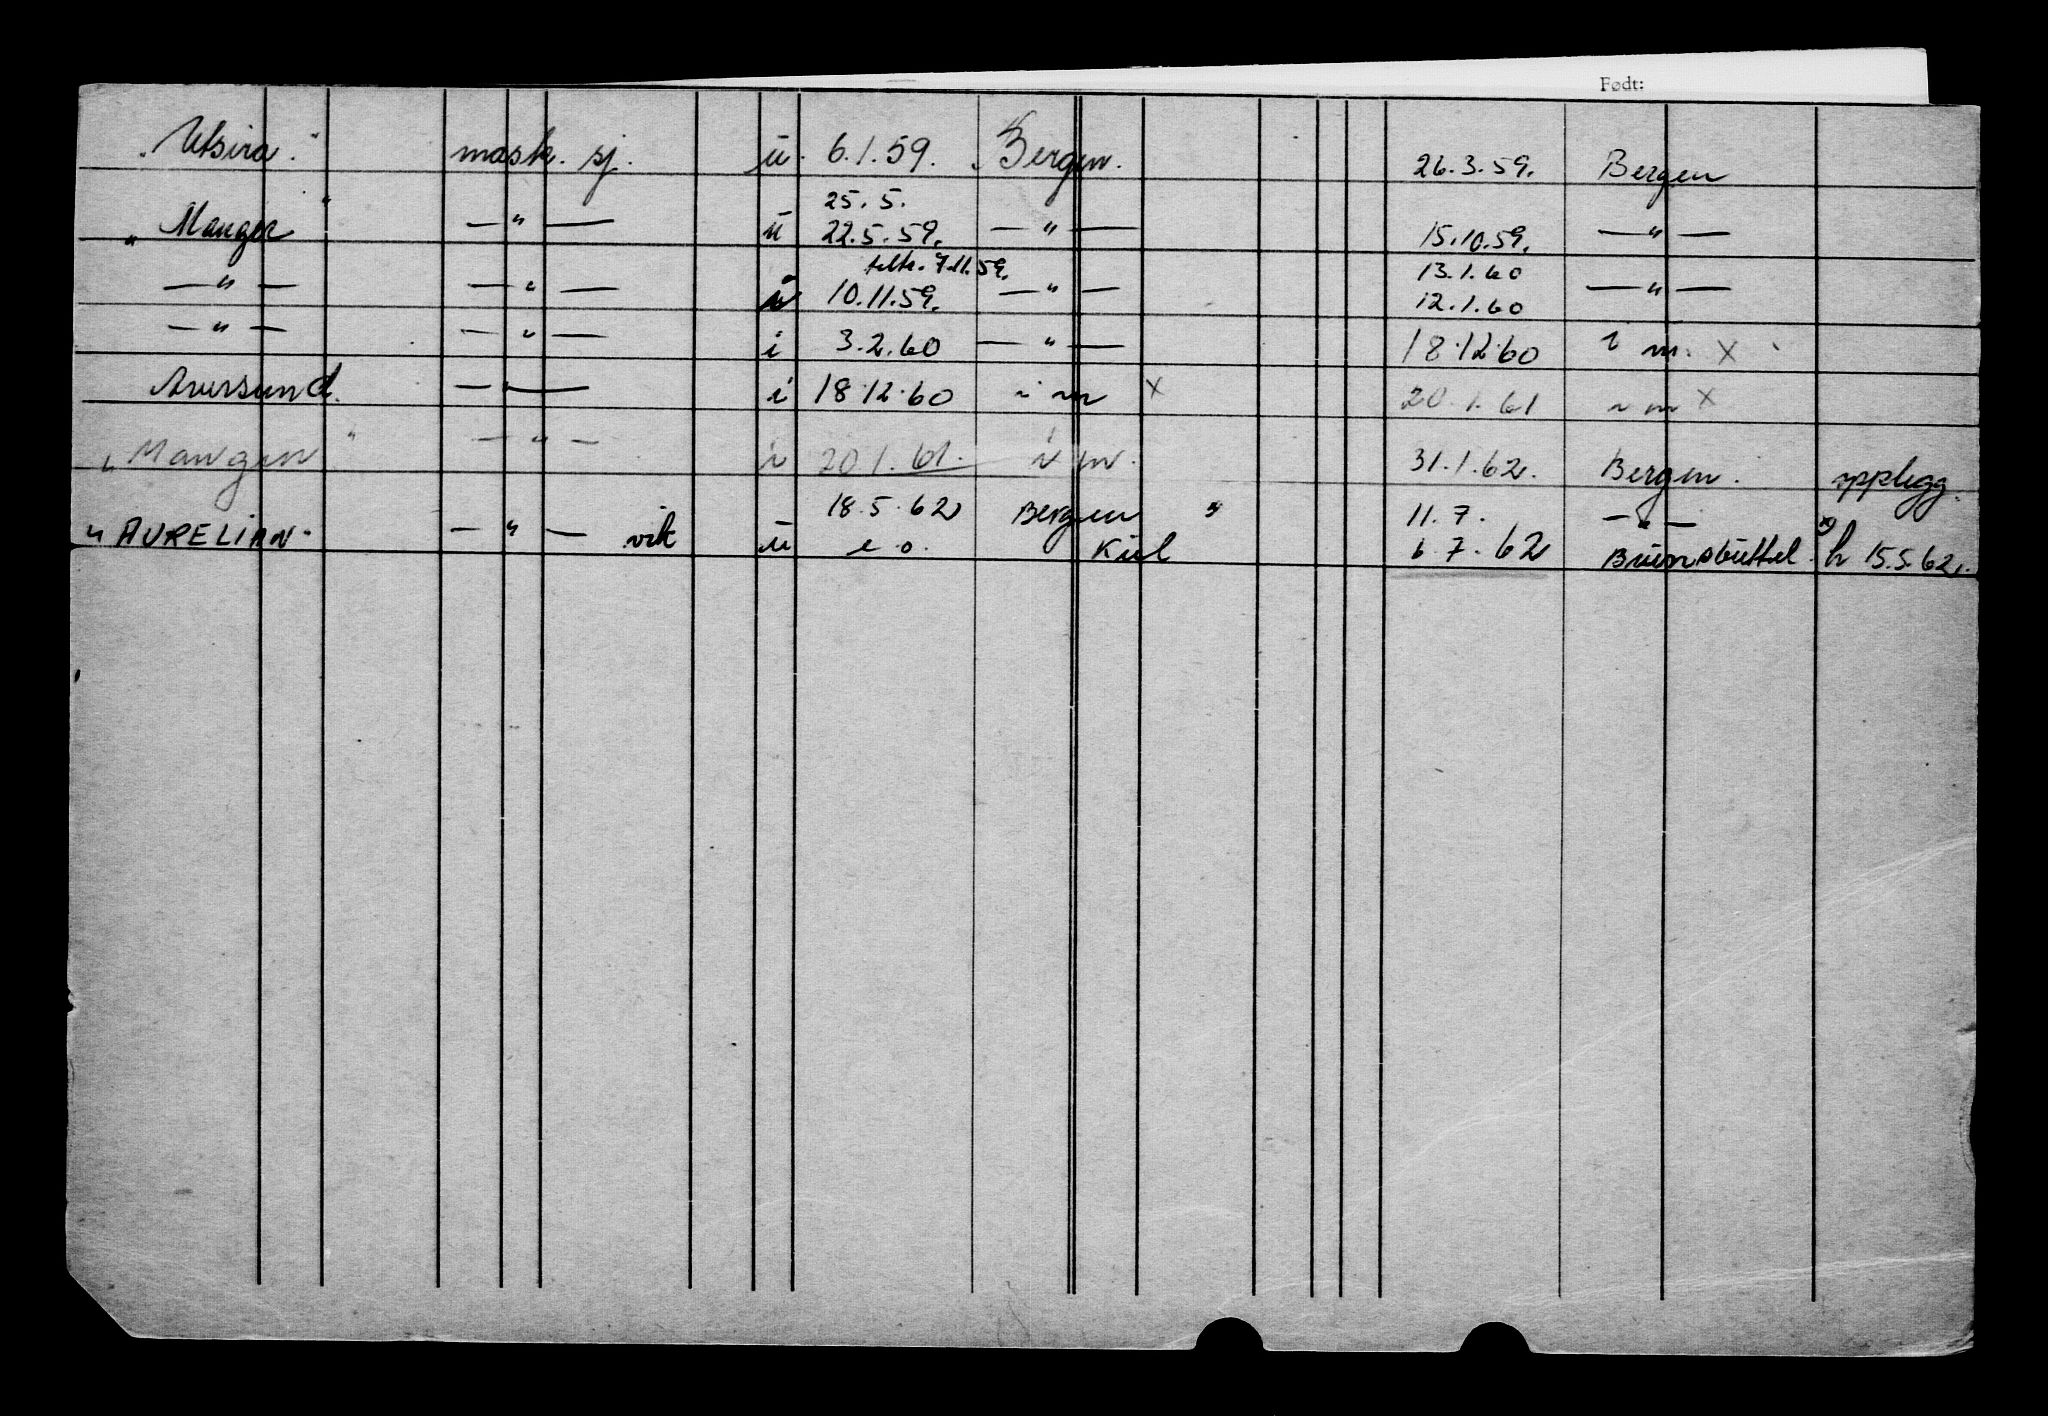 Født:
„Utsira." mask. sj. u. 6.1.59. Bergen. 26.3.59. Bergen
25.5.
„Manger" — " — u 22.5.59. — " — 15.10.59. — " —
7.11.59. 13.1.60
— " — — " — 10.11.59. — " — 12.1.60 — " —
— " — — " — i 3.2.60 — " — 18.12.60 i m. x
Aversund. — " — i 18.12.60 i m x 20.1.61 i m x
„Manger" — " — i 20.1.61. i m. 31.1.62. Bergen. opplegg.
18.5.62 Bergen x) 11.7. — " —
„AURELIAN" — " — vik u e.o. Kiel 6.7.62 Brunsbüttel. x) h 15.5.62.